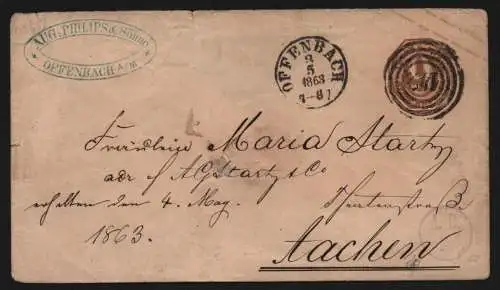 AUG. PHILIPS & SÖHNE
OFFENBACH A/M
OFFENBACH
3
5
1863
Fräulein Maria Startz
adr H AG Startz & Co
erhalten den 4. May
1863.
Aachen